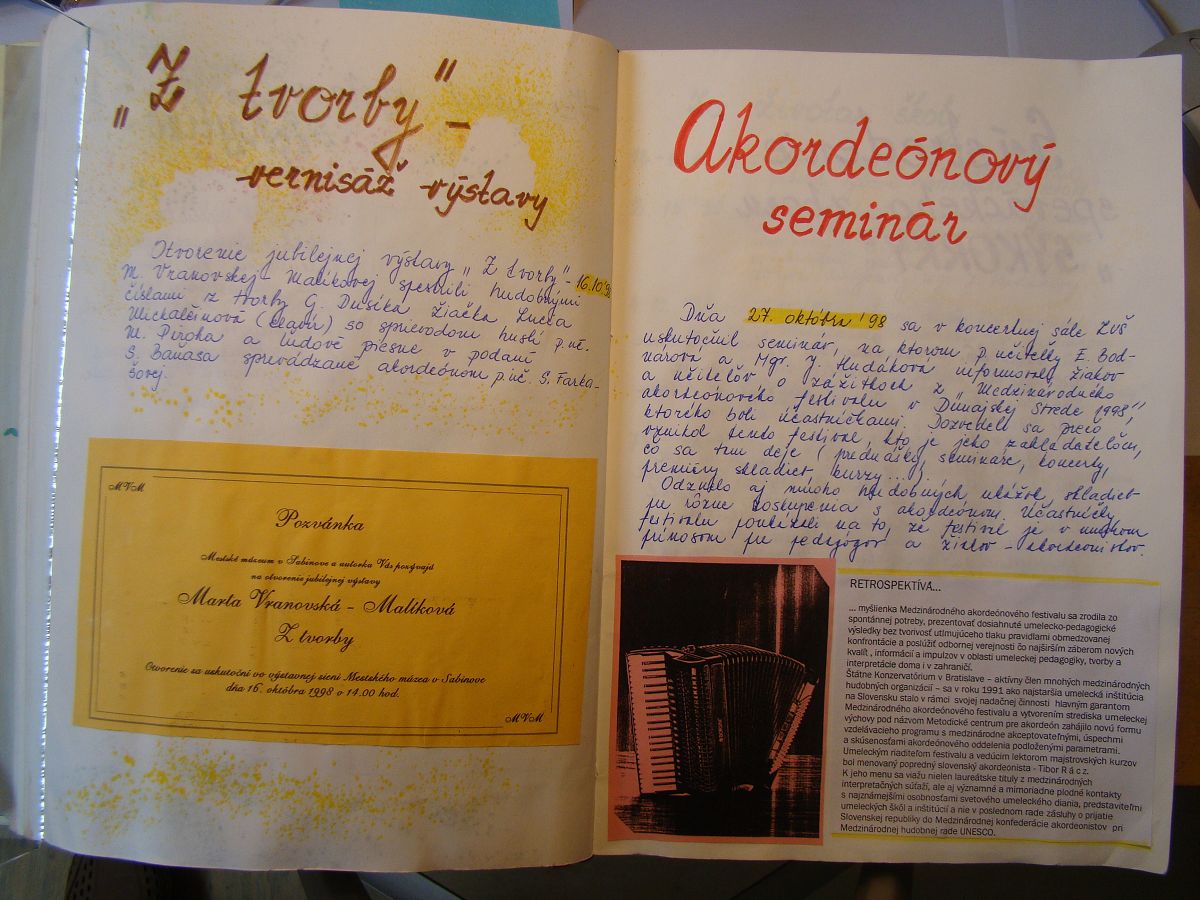 „Z tvorby" -
vernisáž výstavy
Otvorenie jubilejnej výstavy „Z tvorby" - 16.10.98
M. Vranovskej - Malíkovej spestrili hudobnými
číslami z tvorby G. Dusíka, žiačka Lucia
Michalčinová (klavír) so sprievodom huslí p.uč.
M. Piroha a ľudové piesne v podaní
S. Banasa sprevádzané akordeónom p.uč. S. Farka-
šovej.
MVM
Pozvánka
Mestské múzeum v Sabinove a autorka Vás pozývajú
na otvorenie jubilejnej výstavy
Marta Vranovská - Malíková
Z tvorby
Otvorenie sa uskutoční vo výstavnej sieni Mestského múzea v Sabinove
dňa 16. októbra 1998 o 14.00 hod.
MVM
Akordeónový
seminár
Dňa 27. októbra '98 sa v koncertnej sále ZUŠ
uskutočnil seminár, na ktorom p.učiteľky E. Bod-
nárová a Mgr. J. Hudáková informovali žiakov
a učiteľov o zážitkoch z „Medzinárodného
akordeónového festivalu v Dunajskej Strede 1998",
ktorého boli účastníčkami. Dozvedeli sa prečo
vznikol tento festival, kto je jeho zakladateľom,
čo sa tam deje (prednášky, semináre, koncerty,
premiéry skladieb kurzy...).
Odznelo aj mnoho hudobných ukážok, skladieb
pre rôzne zoskupenia s akordeónom. Účastníčky
festivalu poukázali na to, že festival je v mnohom
prínosom pre pedagógov a žiakov - akordeonistov.
RETROSPEKTÍVA...
... myšlienka Medzinárodného akordeónového festivalu sa zrodila zo
spontánnej potreby, prezentovať dosiahnuté umelecko-pedagogické
výsledky bez tvorivosť utlmujúceho tlaku pravidlami obmedzovanej
konfrontácie a poslúžiť odbornej verejnosti čo najširším záberom nových
kvalít , informácií a impulzov v oblasti umeleckej pedagogiky, tvorby a
interpretácie doma i v zahraničí.
Štátne Konzervatórium v Bratislave – aktívny člen mnohých medzinárodných
hudobných organizácií – sa v roku 1991 ako najstaršia umelecká inštitúcia
na Slovensku stalo v rámci svojej nadačnej činnosti hlavným garantom
Medzinárodného akordeónového festivalu a vytvorením strediska umeleckej
výchovy pod názvom Metodické centrum pre akordeón zahájilo novú formu
vzdelávacieho programu s medzinárodne akceptovateľnými, úspechmi
a skúsenosťami akordeónového oddelenia podloženými parametrami.
Umeleckým riaditeľom festivalu a vedúcim lektorom majstrovských kurzov
bol menovaný popredný slovenský akordeonista - Tibor R á c z.
K jeho menu sa viažu nielen laureátske tituly z medzinárodných
interpretačných súťaží, ale aj významné a mimoriadne plodné kontakty
s najznámejšími osobnosťami svetového umeleckého diania, predstaviteľmi
umeleckých škôl a inštitúcií a nie v poslednom rade zásluhy o prijatie
Slovenskej republiky do Medzinárodnej konfederácie akordeonistov pri
Medzinárodnej hudobnej rade UNESCO.